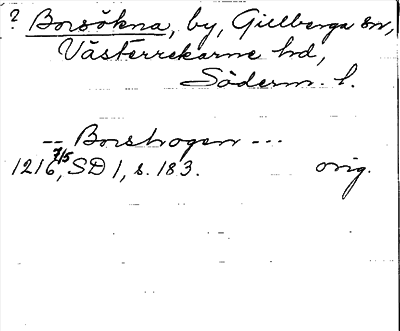 ? Borsökna, by, Gillberga sn,
Västerrekarne hd,
Söderm. l.
-- Borshogen ---
1216 7/5, SD 1, s. 183. orig.